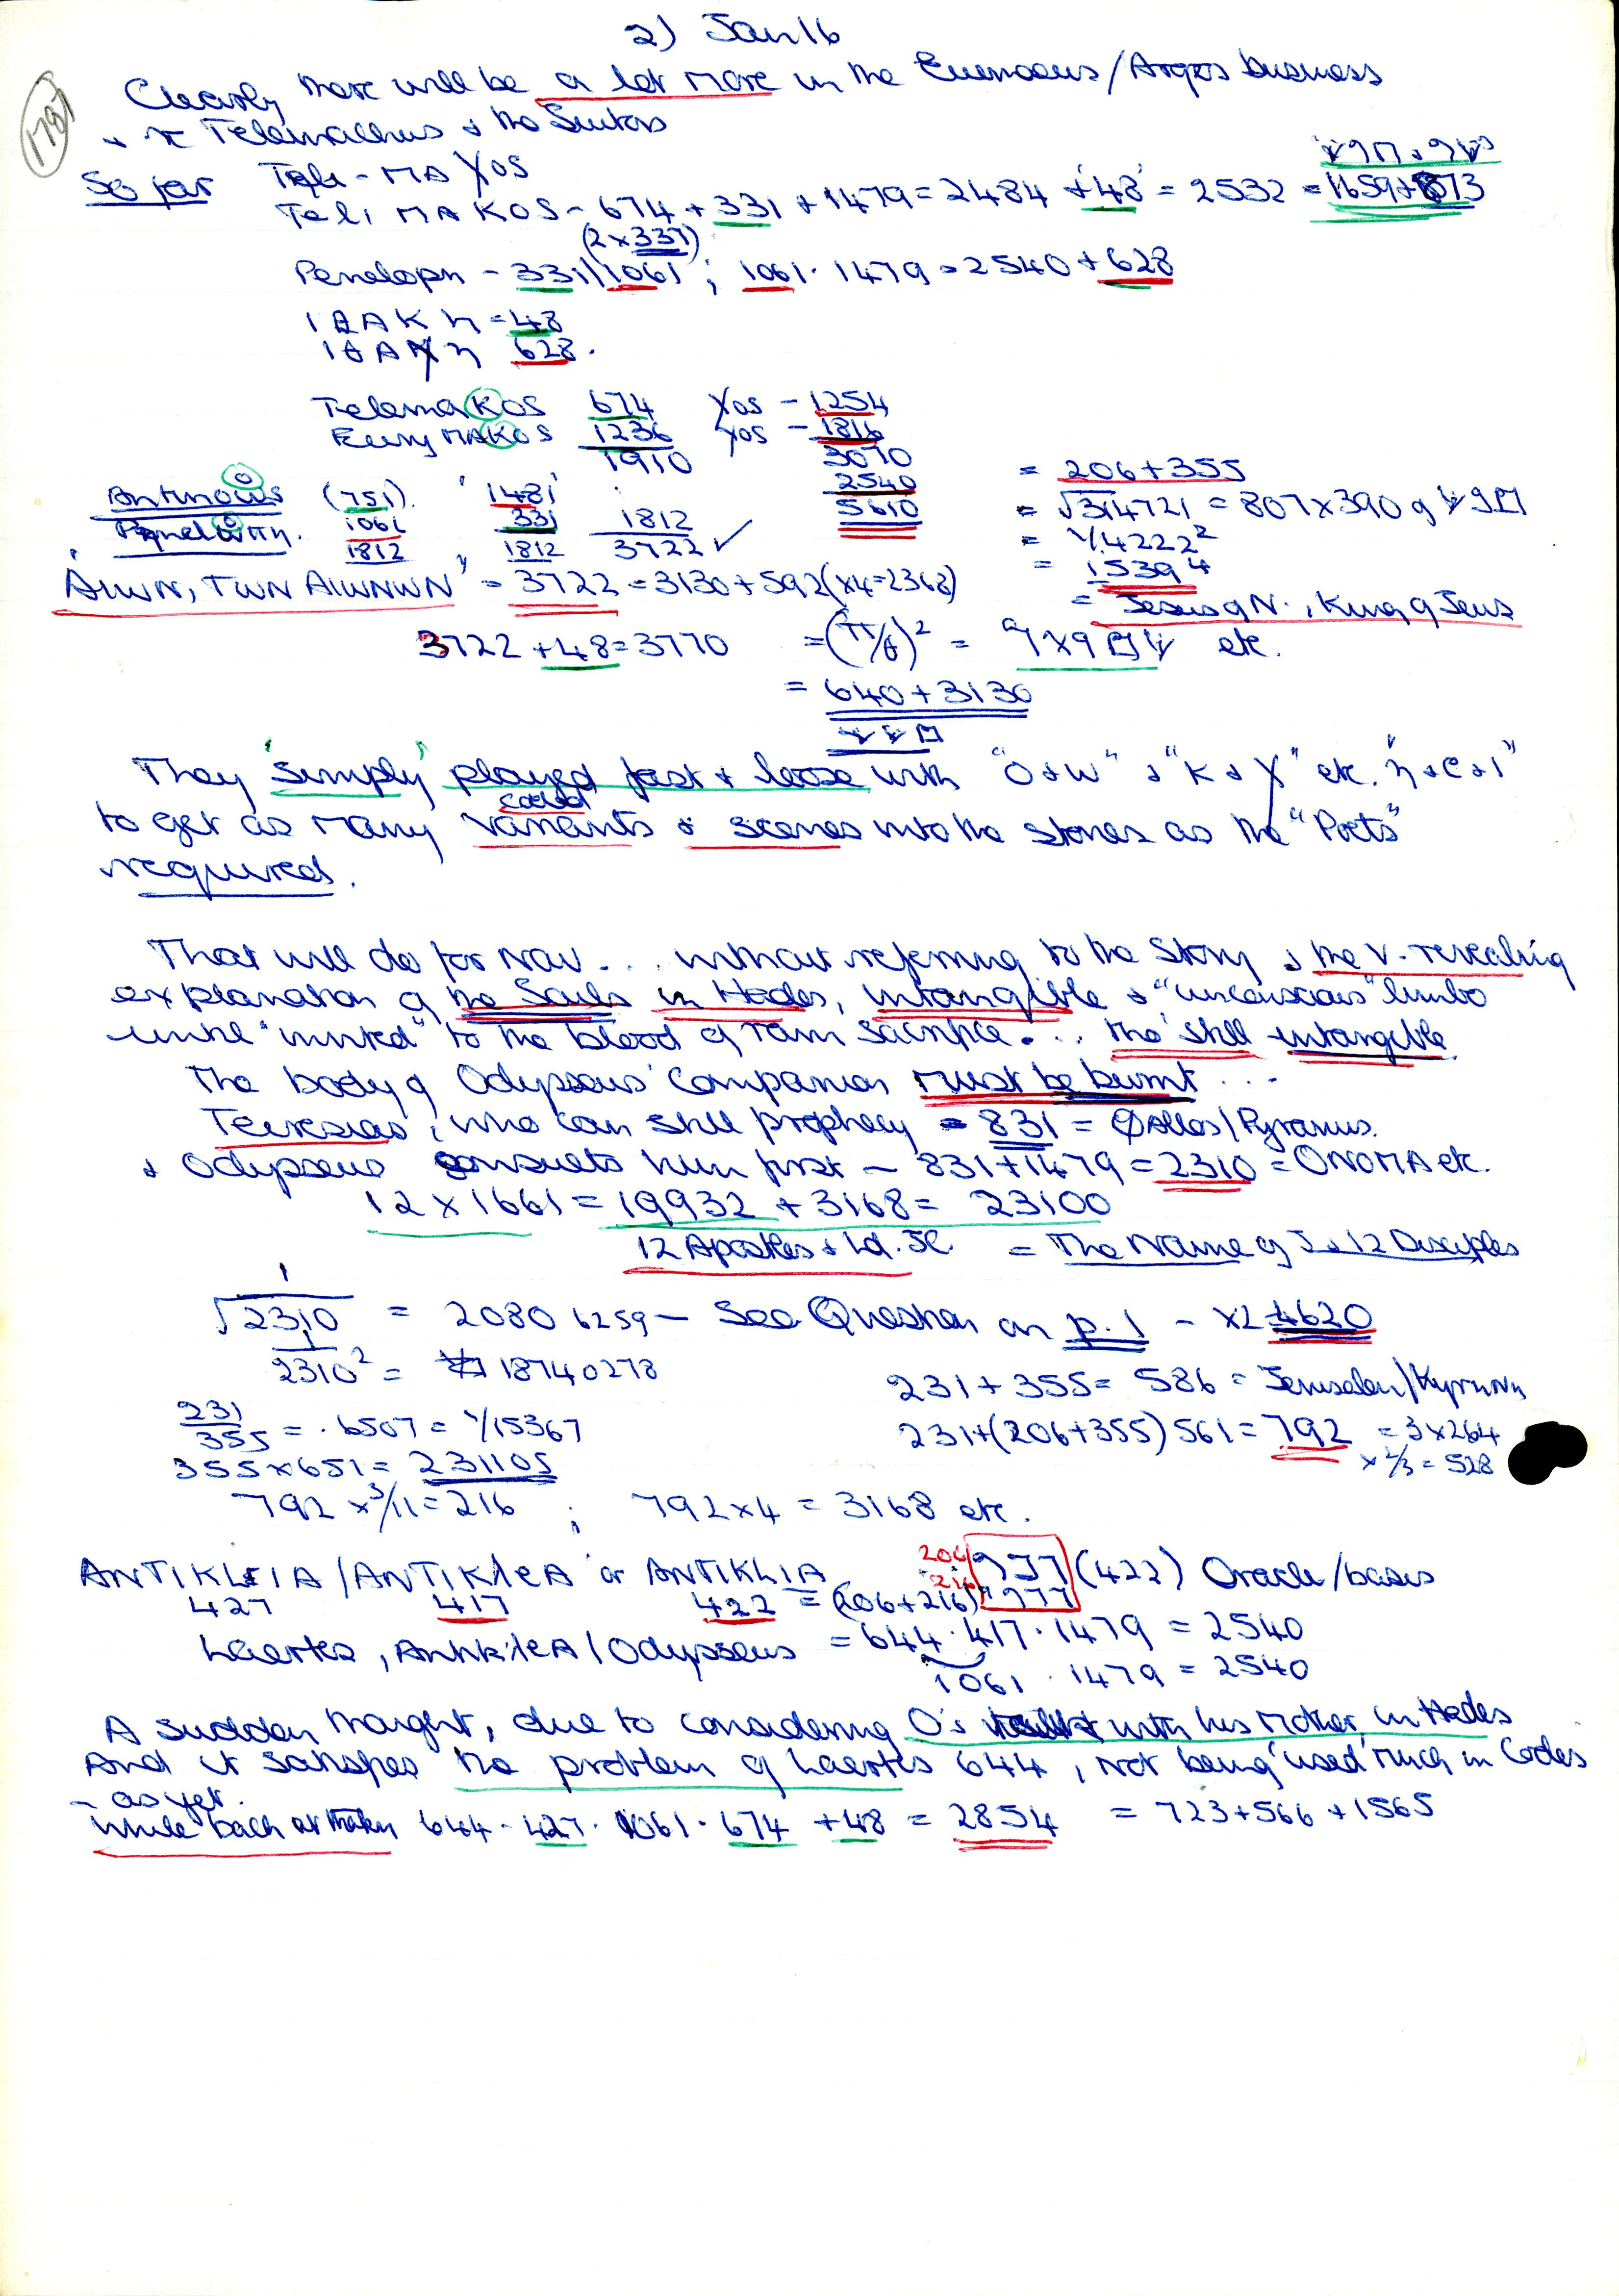 2) Jan 16
1787
Clearly there will be a lot more in the Eumaeus/Argos business
+ Telemachus & the Suitors
So far Tele-MAXOS
TeliMAKOS - 674 + 331 + 1479 = 2484 + 48 = 2532 = 1659 + 873
(2 x 337)
Penelopη - 331/1061 ; 1061 . 1479 = 2540 + 628
IΘAKη = 48
IΘAXη 628.
TelemaKOS 674 XOS - 1254
EuryMAKOS 1236 XOS - 1816
1910 3070
Antinous (751) '1481' 2540 = 206 + 355
Penelωπη. 1061 331 1812 5610 = √314721 = 807 x 390
1812 1812 3722 ✓ = 1/4222²
= 15394
AIWN, TWN AIWNWN" = 3722 = 3130 + 592 (x4 = 2368) = Jesus of N., King of Jews
3722 + 48 = 3770 = (π/6)² = etc.
= 640 + 3130
They 'simply' played fast & loose with "O & W" & "K & X" etc. η & e & i"
to get as many coded variants & scenes into the stories as the "Poets"
required.
That will do for now... without referring to the Story & the v. revealing
explanation of the Souls in Hades, intangible & "unconscious" limbo
until "invited" to the blood of ram sacrifice... the still intangible.
The body of Odysseus' Companion must be burnt ...
Teiresias, who can still prophecy = 831 = Φallos/Pyramus.
& Odysseus consults him first - 831 + 1479 = 2310 = ONOMA etc.
12 x 1661 = 19932 + 3168 = 23100
12 Apostles + Ld. JC. = The Name of J & 12 Disciples
1
√2310 = 2080 6259 - See Question on p. 1 - x2 = 4620
1
2310² = 18740278
231 + 355 = 586 = Jerusalem/
231/355 = .6507 = 1/15367
231 + (206 + 355) 561 = 792 = 3 x 264
x 2/3 = 528
355 x 651 = 231105
792 x 3/11 = 216 ; 792 x 4 = 3168 etc.
ANTIKLEIA/ANTIKleA or ANTIKLIA 206 777 (422) Oracle/bases
427 417 422 = (206 + 216) 216 777
Laertes, AntikleA/Odysseus = 644 . 417 . 1479 = 2540
1061 . 1479 = 2540
A sudden thought, due to considering O's with his Mother in Hades
And it satisfies the problem of Laertes 644, not being 'used' much in Codes
- as yet.
While back at 644 . 427 . 1061 . 674 + 48 = 2854 = 723 + 566 + 1565